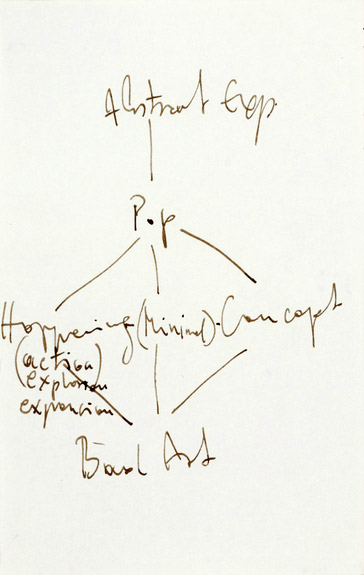 Abstract Exp.
Pop
Happening (Minimal) · Concept
(action)
explosion
expancion
Bad Art